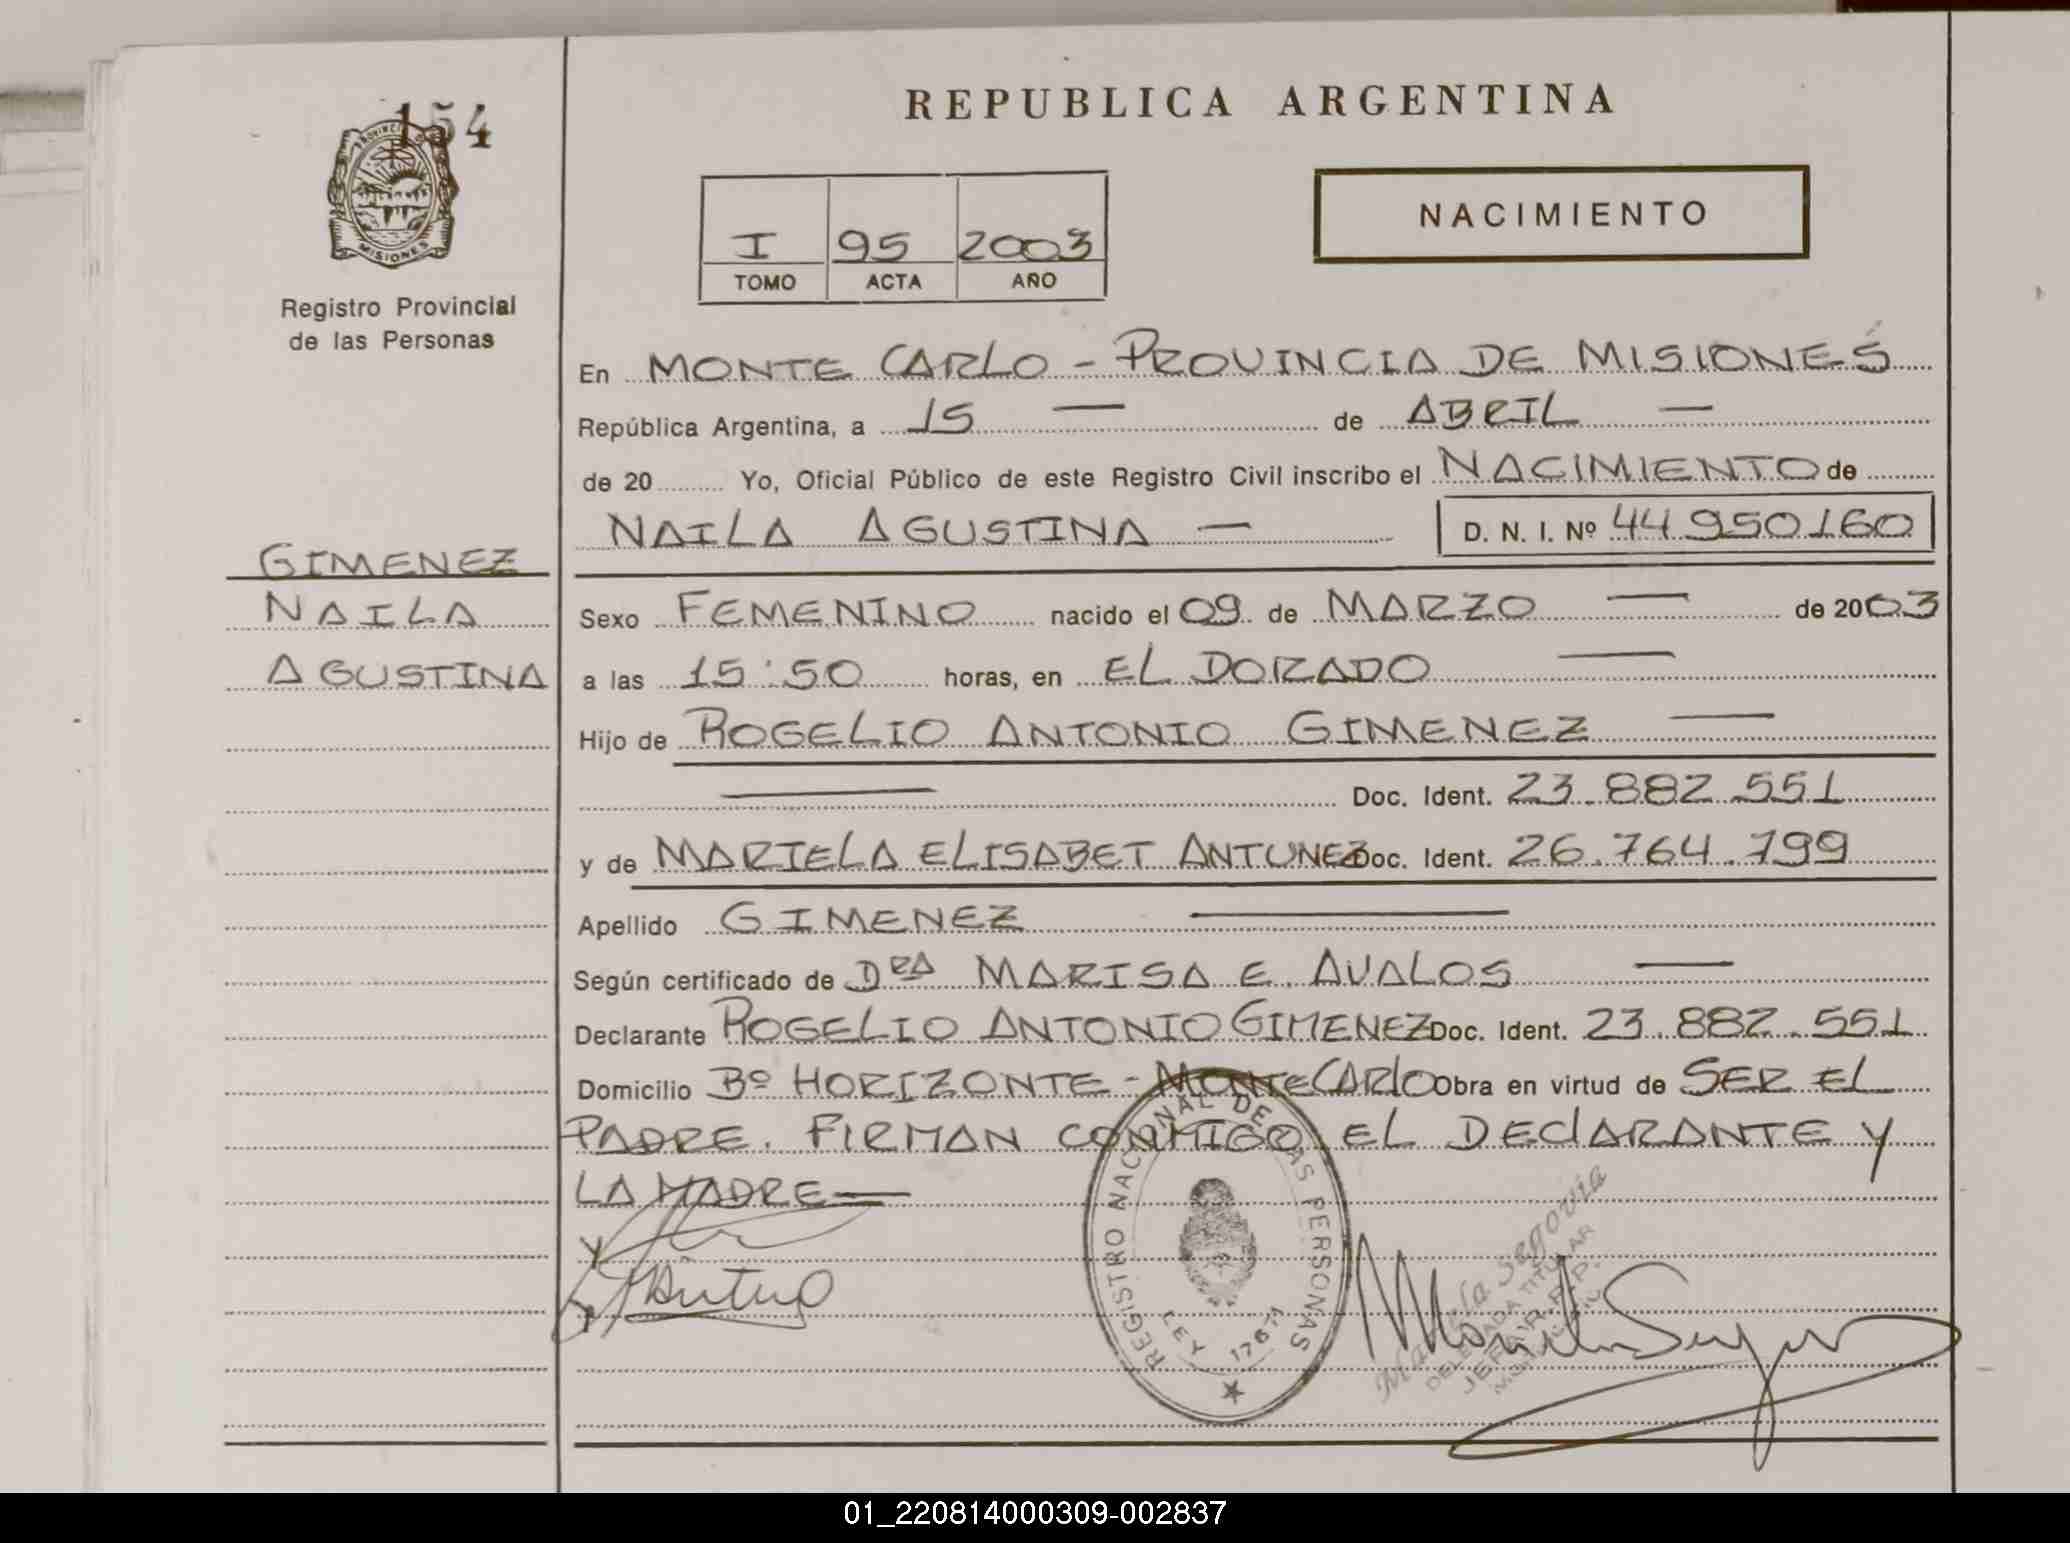 154
PROVINCIA DE
MISIONES
Registro Provincial
de las Personas
REPUBLICA ARGENTINA
I 95 2003
TOMO ACTA AÑO
NACIMIENTO
En MONTE CARLO - PROVINCIA DE MISIONES
República Argentina, a 15 — de ABRIL —
de 20 Yo, Oficial Público de este Registro Civil inscribo el NACIMIENTO de
NAILA AGUSTINA — D. N. I. Nº 44.950.160
GIMENEZ
NAILA
AGUSTINA
Sexo FEMENINO nacido el 09 de MARZO — de 2003
a las 15:50 horas, en EL DORADO —
Hijo de ROGELIO ANTONIO GIMENEZ —
— Doc. Ident. 23.882.551
y de MARIELA ELISABET ANTUNEZ Doc. Ident. 26.764.799
Apellido GIMENEZ —
Según certificado de DRA MARISA E. AVALOS —
Declarante ROGELIO ANTONIO GIMENEZ Doc. Ident. 23.882.551
Domicilio Bº HORIZONTE - MONTECARLO Obra en virtud de SER EL
PADRE. FIRMAN CONMIGO EL DECLARANTE Y
LA MADRE —
REGISTRO NACIONAL DE LAS PERSONAS
LEY 17671
Segovia
DELEGADA TITULAR
01_220814000309-002837